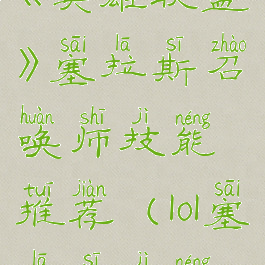 《英雄联盟
sāi lā sī zhào
》塞拉斯召
huàn shī jì néng
唤师技能
tuī jiàn sāi
推荐(lol塞
lā sī jì néng